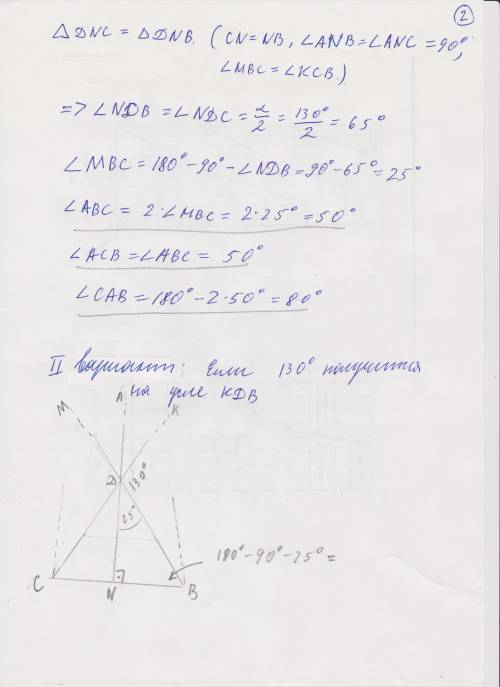 2
△DNC = △DNB. (CN=NB, ∠ANB=∠ANC=90°,
∠MBC=∠KCB.)
=> ∠NDB = ∠NDC = α/2 = 130°/2 = 65°
∠MBC=180°-90°-∠NDB=90°-65°=25°
∠ABC = 2·∠MBC = 2·25°=50°
∠ACB=∠ABC = 50°
∠CAB=180°-2·50°=80°
II вариант: Если 130° получится
на угле KDB
M A K
D 130°
25°
180°-90°-25°=
C N B